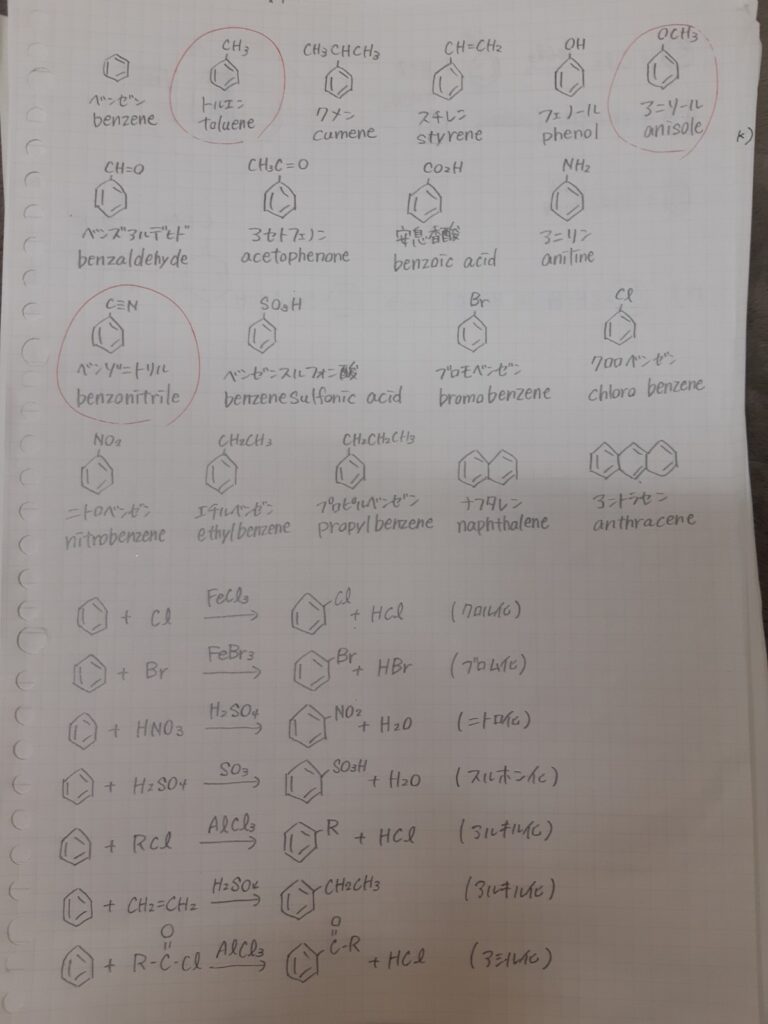 CH3 CH3CHCH3 CH=CH2 OH OCH3
ベンゼン トルエン クメン スチレン フェノール アニソール
benzene toluene cumene styrene phenol anisole
K)
CH=O CH3C=O CO2H NH2
ベンズアルデヒド アセトフェノン 安息香酸 アニリン
benzaldehyde acetophenone benzoic acid aniline
C≡N SO3H Br Cl
ベンゾニトリル ベンゼンスルフォン酸 ブロモベンゼン クロロベンゼン
benzonitrile benzenesulfonic acid bromobenzene chloro benzene
NO2 CH2CH3 CH2CH2CH3
ニトロベンゼン エチルベンゼン プロピルベンゼン ナフタレン アントラセン
nitrobenzene ethylbenzene propylbenzene naphthalene anthracene
+ Cl FeCl3 → Cl + HCl (クロル化)
+ Br FeBr3 → Br + HBr (ブロム化)
+ HNO3 H2SO4 → NO2 + H2O (ニトロ化)
+ H2SO4 SO3 → SO3H + H2O (スルホン化)
+ RCl AlCl3 → R + HCl (アルキル化)
+ CH2=CH2 H2SO4 → CH2CH3 (アルキル化)
O O
+ R-C-Cl AlCl3 → C-R + HCl (アシル化)